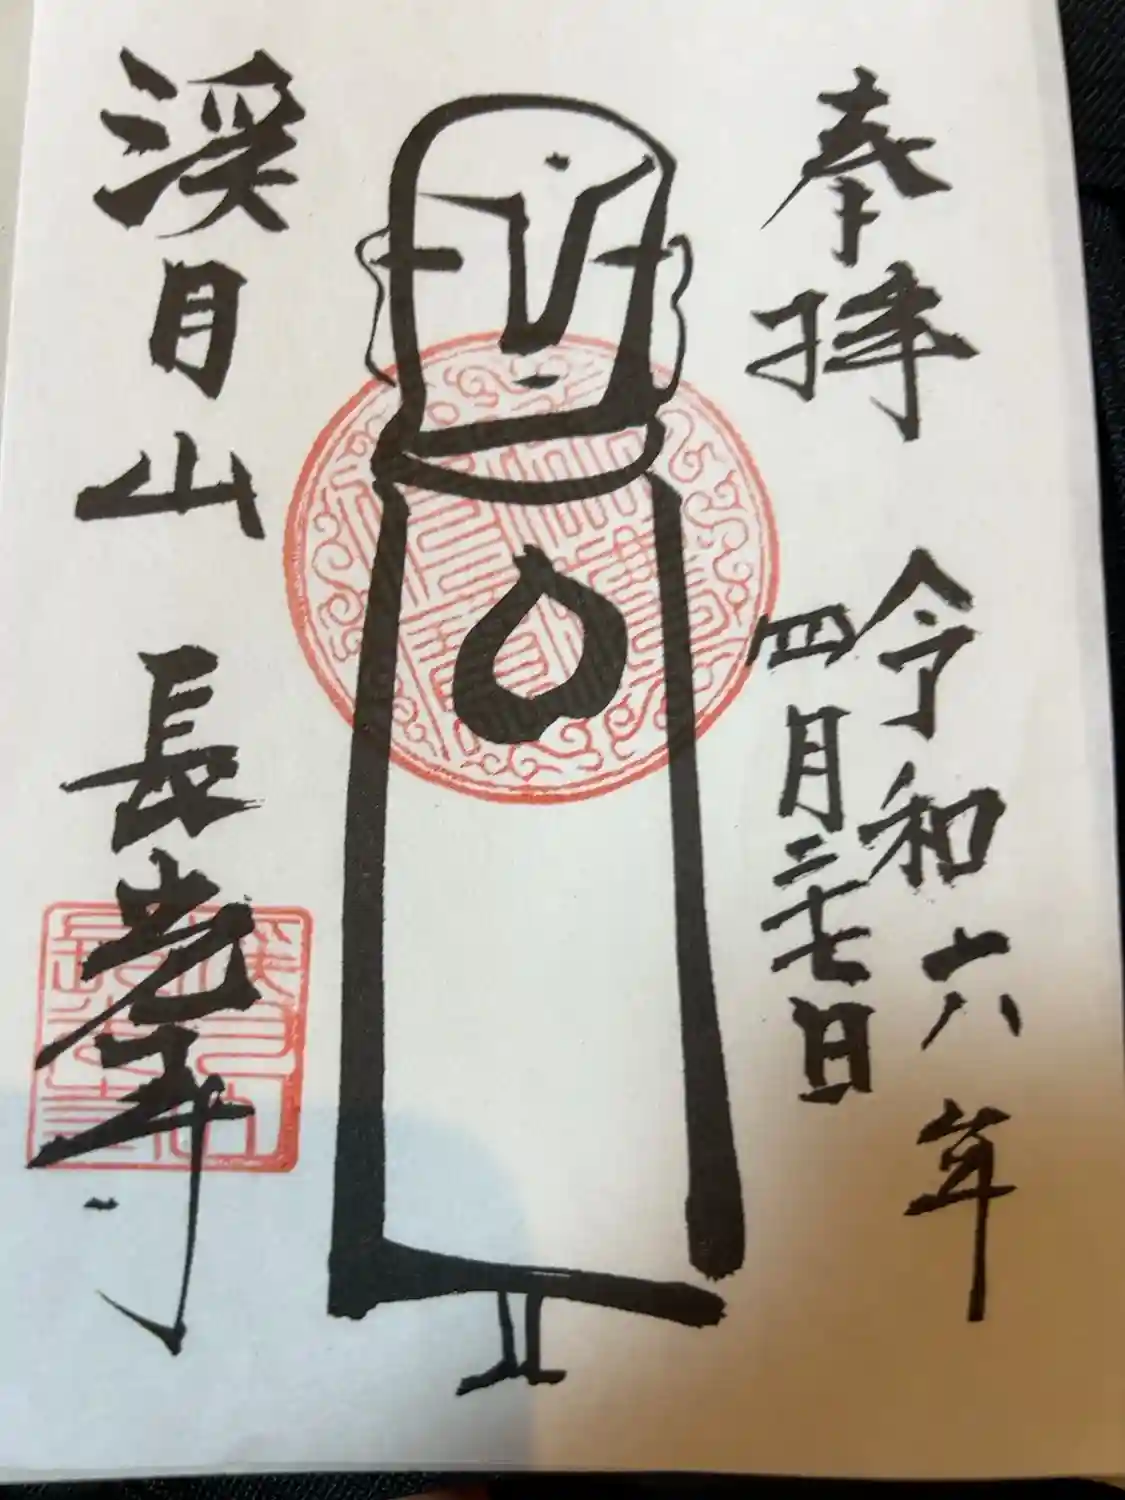 奉拝 令和六年
四月二七日
渓月山 長光寺